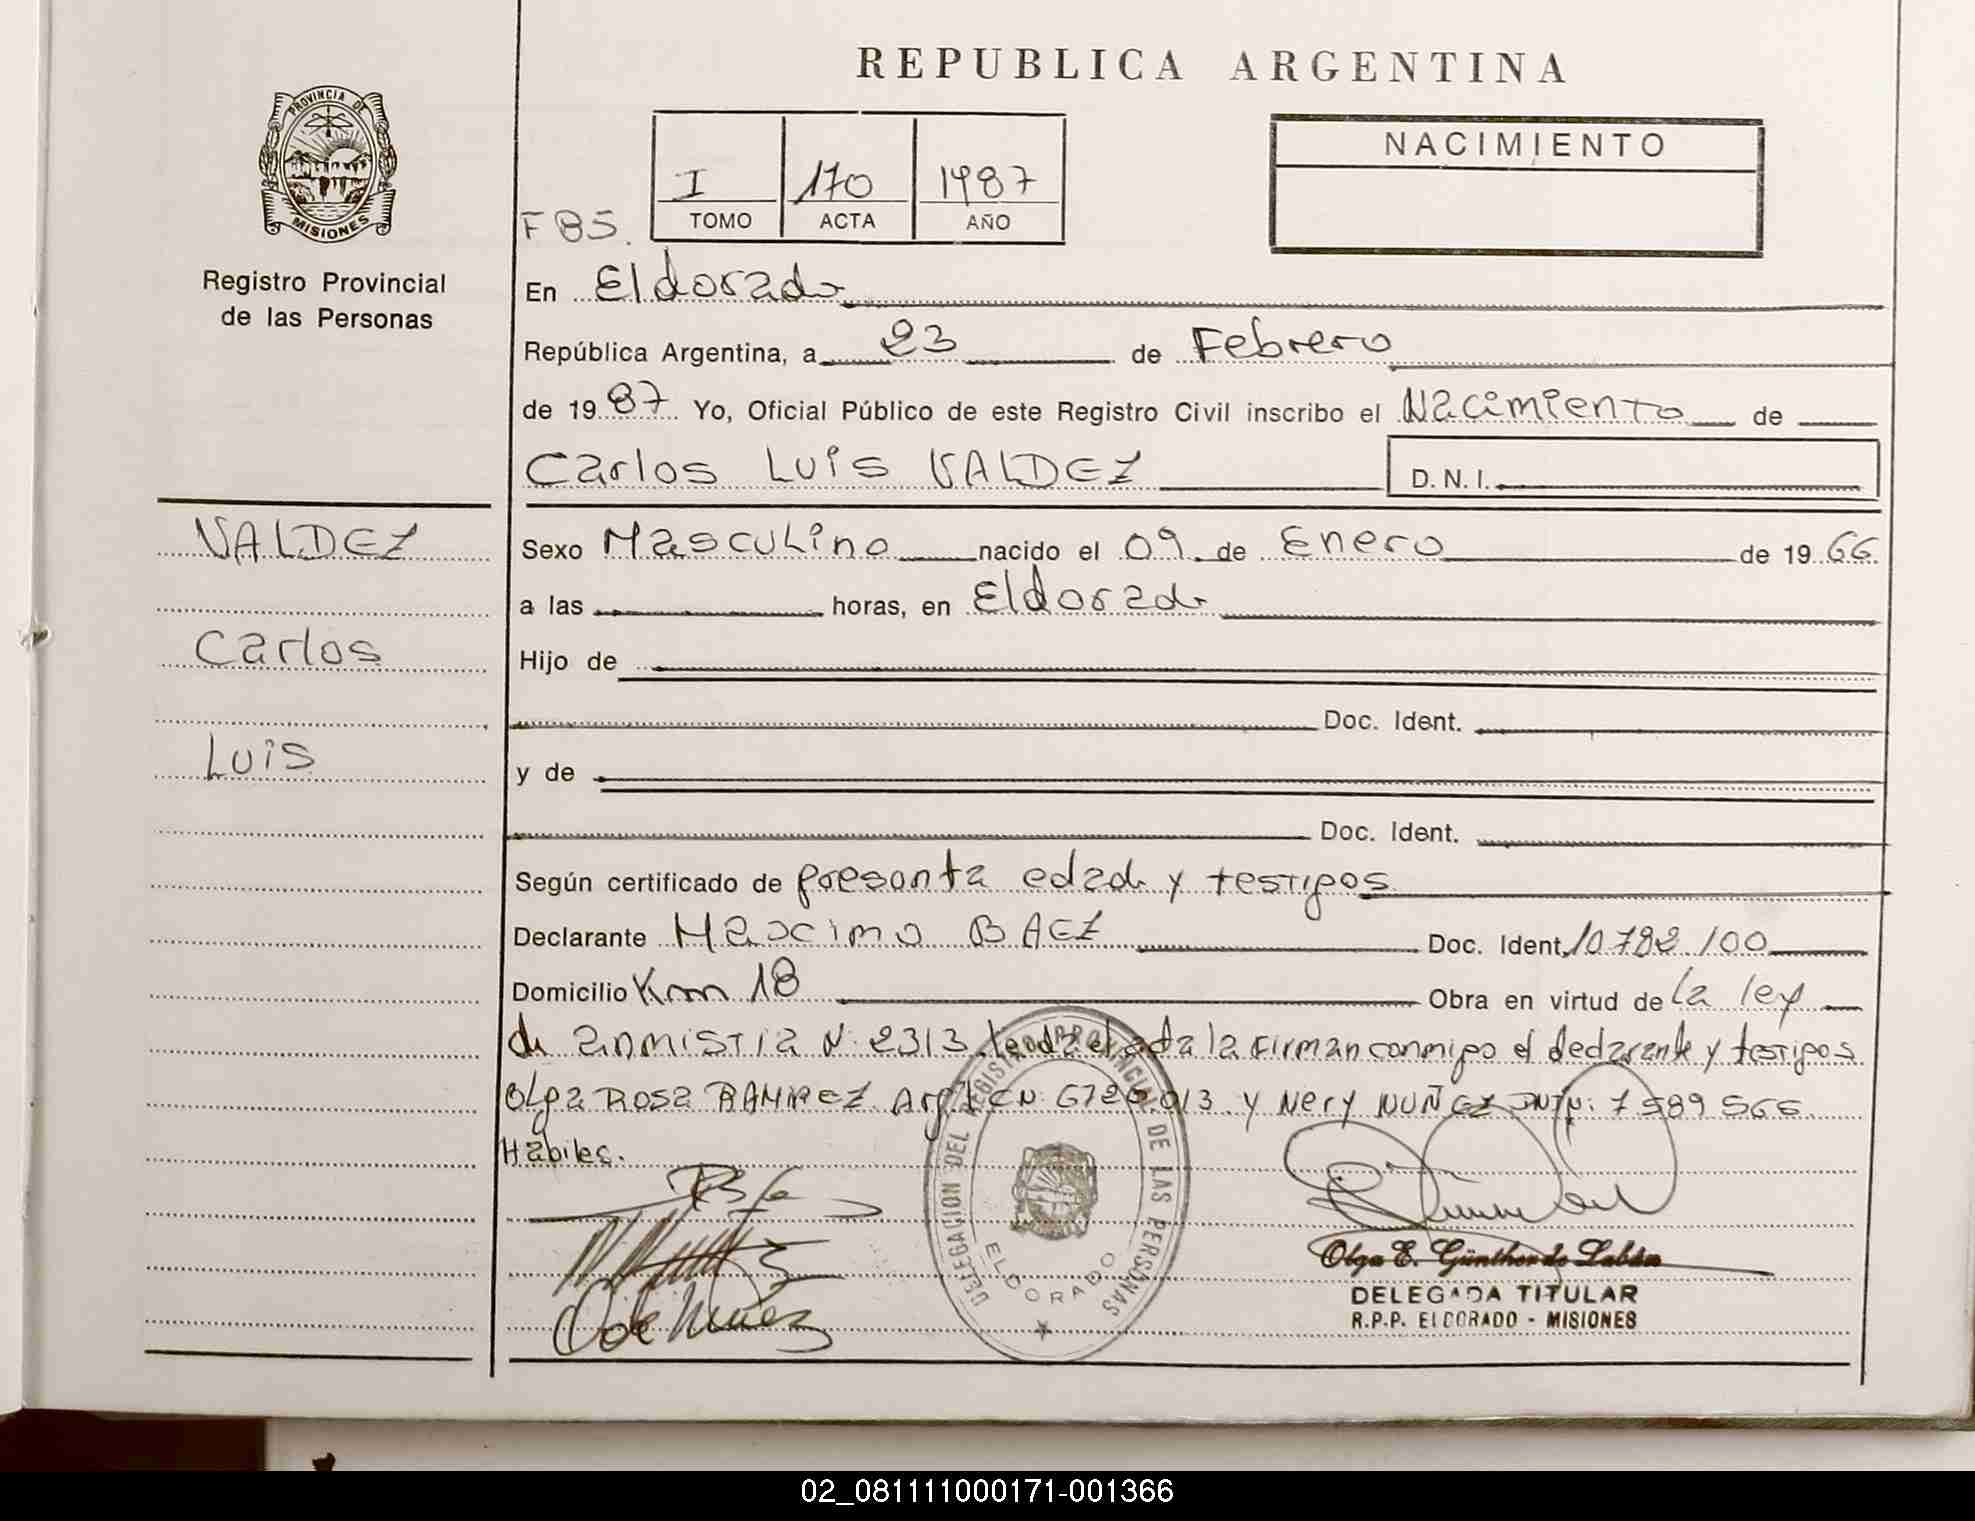 REPUBLICA ARGENTINA
PROVINCIA DE
MISIONES
Registro Provincial
de las Personas
I 170 1987
TOMO ACTA AÑO
NACIMIENTO
F 85.
En Eldorado
República Argentina, a 23 de Febrero
de 19 87 Yo, Oficial Público de este Registro Civil inscribo el Nacimiento de
Carlos Luis VALDEZ D. N. I.
VALDEZ
Carlos
Luis
Sexo Masculino nacido el 09 de Enero de 19 66
a las horas, en Eldorado
Hijo de
Doc. Ident.
y de
Doc. Ident.
Según certificado de presonta edad y testigos
Declarante Maximo BAEZ Doc. Ident. 10.782.100
Domicilio Km 18 Obra en virtud de la ley
de anmistia N: 2313 leida el acta la firman conmigo el declarante y testigos
Olga Rosa RAMIREZ Arg. CN 6720013 y Nery NUÑEZ DNIN: 7589566
Habiles.
DELEGACION DEL REGISTRO PROVINCIAL DE LAS PERSONAS
ELDORADO
Olga E. Günther de Labán
DELEGADA TITULAR
R.P.P. ELDORADO - MISIONES
02_081111000171-001366